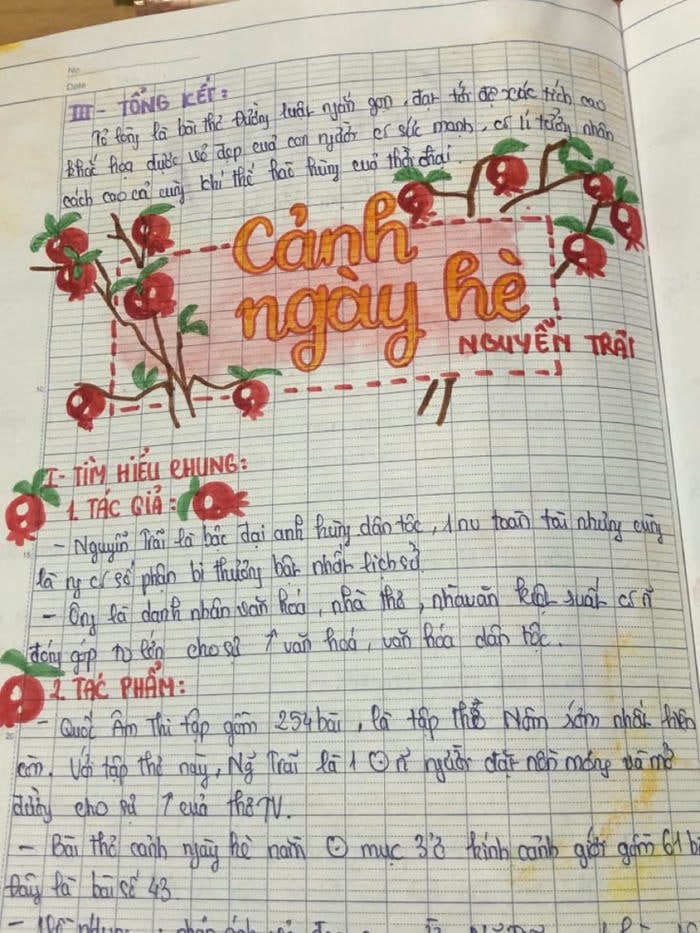 No:
Date
III- TỔNG KẾT:
Tỏ lòng là bài thơ Đường luật ngắn gọn, đạt tới độ xúc tích cao
khắc họa được vẻ đẹp của con người có sức mạnh, có lí tưởng nhân
cách cao cả cùng khí thế hào hùng của thời đại.
Cảnh
ngày hè
NGUYỄN TRÃI
I- TÌM HIỂU CHUNG:
1. TÁC GIẢ:
- Nguyễn Trãi là bậc đại anh hùng dân tộc, 1 nv toàn tài nhưng cũng
là ng có số phận bi thương bậc nhất lịch sử.
- Ông là danh nhân văn hoá, nhà thơ, nhà văn kiệt suất có n~
đóng góp to lớn cho sự ↑ văn hoá, văn hóa dân tộc.
2. TÁC PHẨM:
- Quốc Âm Thi tập gồm 254 bài, là tập thơ Nôm sớm nhất hiện
còn. Với tập thơ này, Ng~ Trãi là 1 ⊙ n~ người đặt nền móng và mở
đường cho sự ↑ của thơ TV.
- Bài thơ cảnh ngày hè nằm ⊙ mục kính cảnh giới gồm 61 b
Đây là bài số 43.